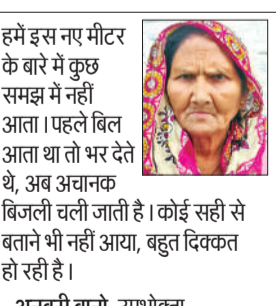 हमें इस नए मीटर
के बारे में कुछ
समझ में नहीं
आता। पहले बिल
आता था तो भर देते
थे, अब अचानक
बिजली चली जाती है। कोई सही से
बताने भी नहीं आया, बहुत दिक्कत
हो रही है।